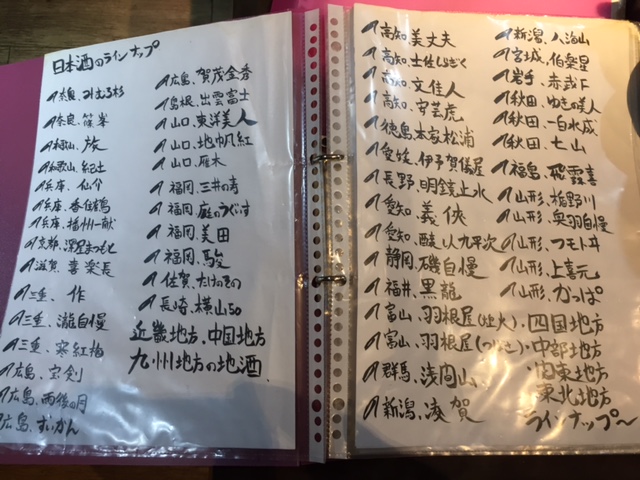 日本酒のラインナップ
奈良、みむろ杉
奈良、篠峯
和歌山、旅
和歌山、紀土
兵庫、仙介
兵庫、香住鶴
兵庫、播州一献
京都、澤屋まつもと
滋賀、喜楽長
三重、作
三重、瀧自慢
三重、寒紅梅
広島、宝剣
広島、雨後の月
広島、ずいかん
広島、賀茂金秀
島根、出雲富士
山口、東洋美人
山口、地帆紅
山口、雁木
福岡、三井の寿
福岡、庭のうぐいす
福岡、美田
福岡、駿
佐賀、たけのその
長崎、横山50
近畿地方、中国地方
九州地方の地酒
高知、美丈夫
高知、土佐しらぎく
高知、文佳人
高知、安芸虎
徳島、本家松浦
愛媛、伊予賀儀屋
長野、明鏡止水
愛知、義侠
愛知、醸し人九平次
静岡、磯自慢
福井、黒龍
富山、羽根屋(煌火)
富山、羽根屋
群馬、浅間山
新潟、湊賀
新潟、八海山
宮城、伯楽星
岩手、赤武F
秋田、ゆきの美人
秋田、一白水成
秋田、七山
福島、飛露喜
山形、楯野川
山形、奥羽自慢
山形、フモトヰ
山形、上喜元
山形、かっぱ
四国地方
・中部地方
・関東地方
東北地方
ラインナップ～